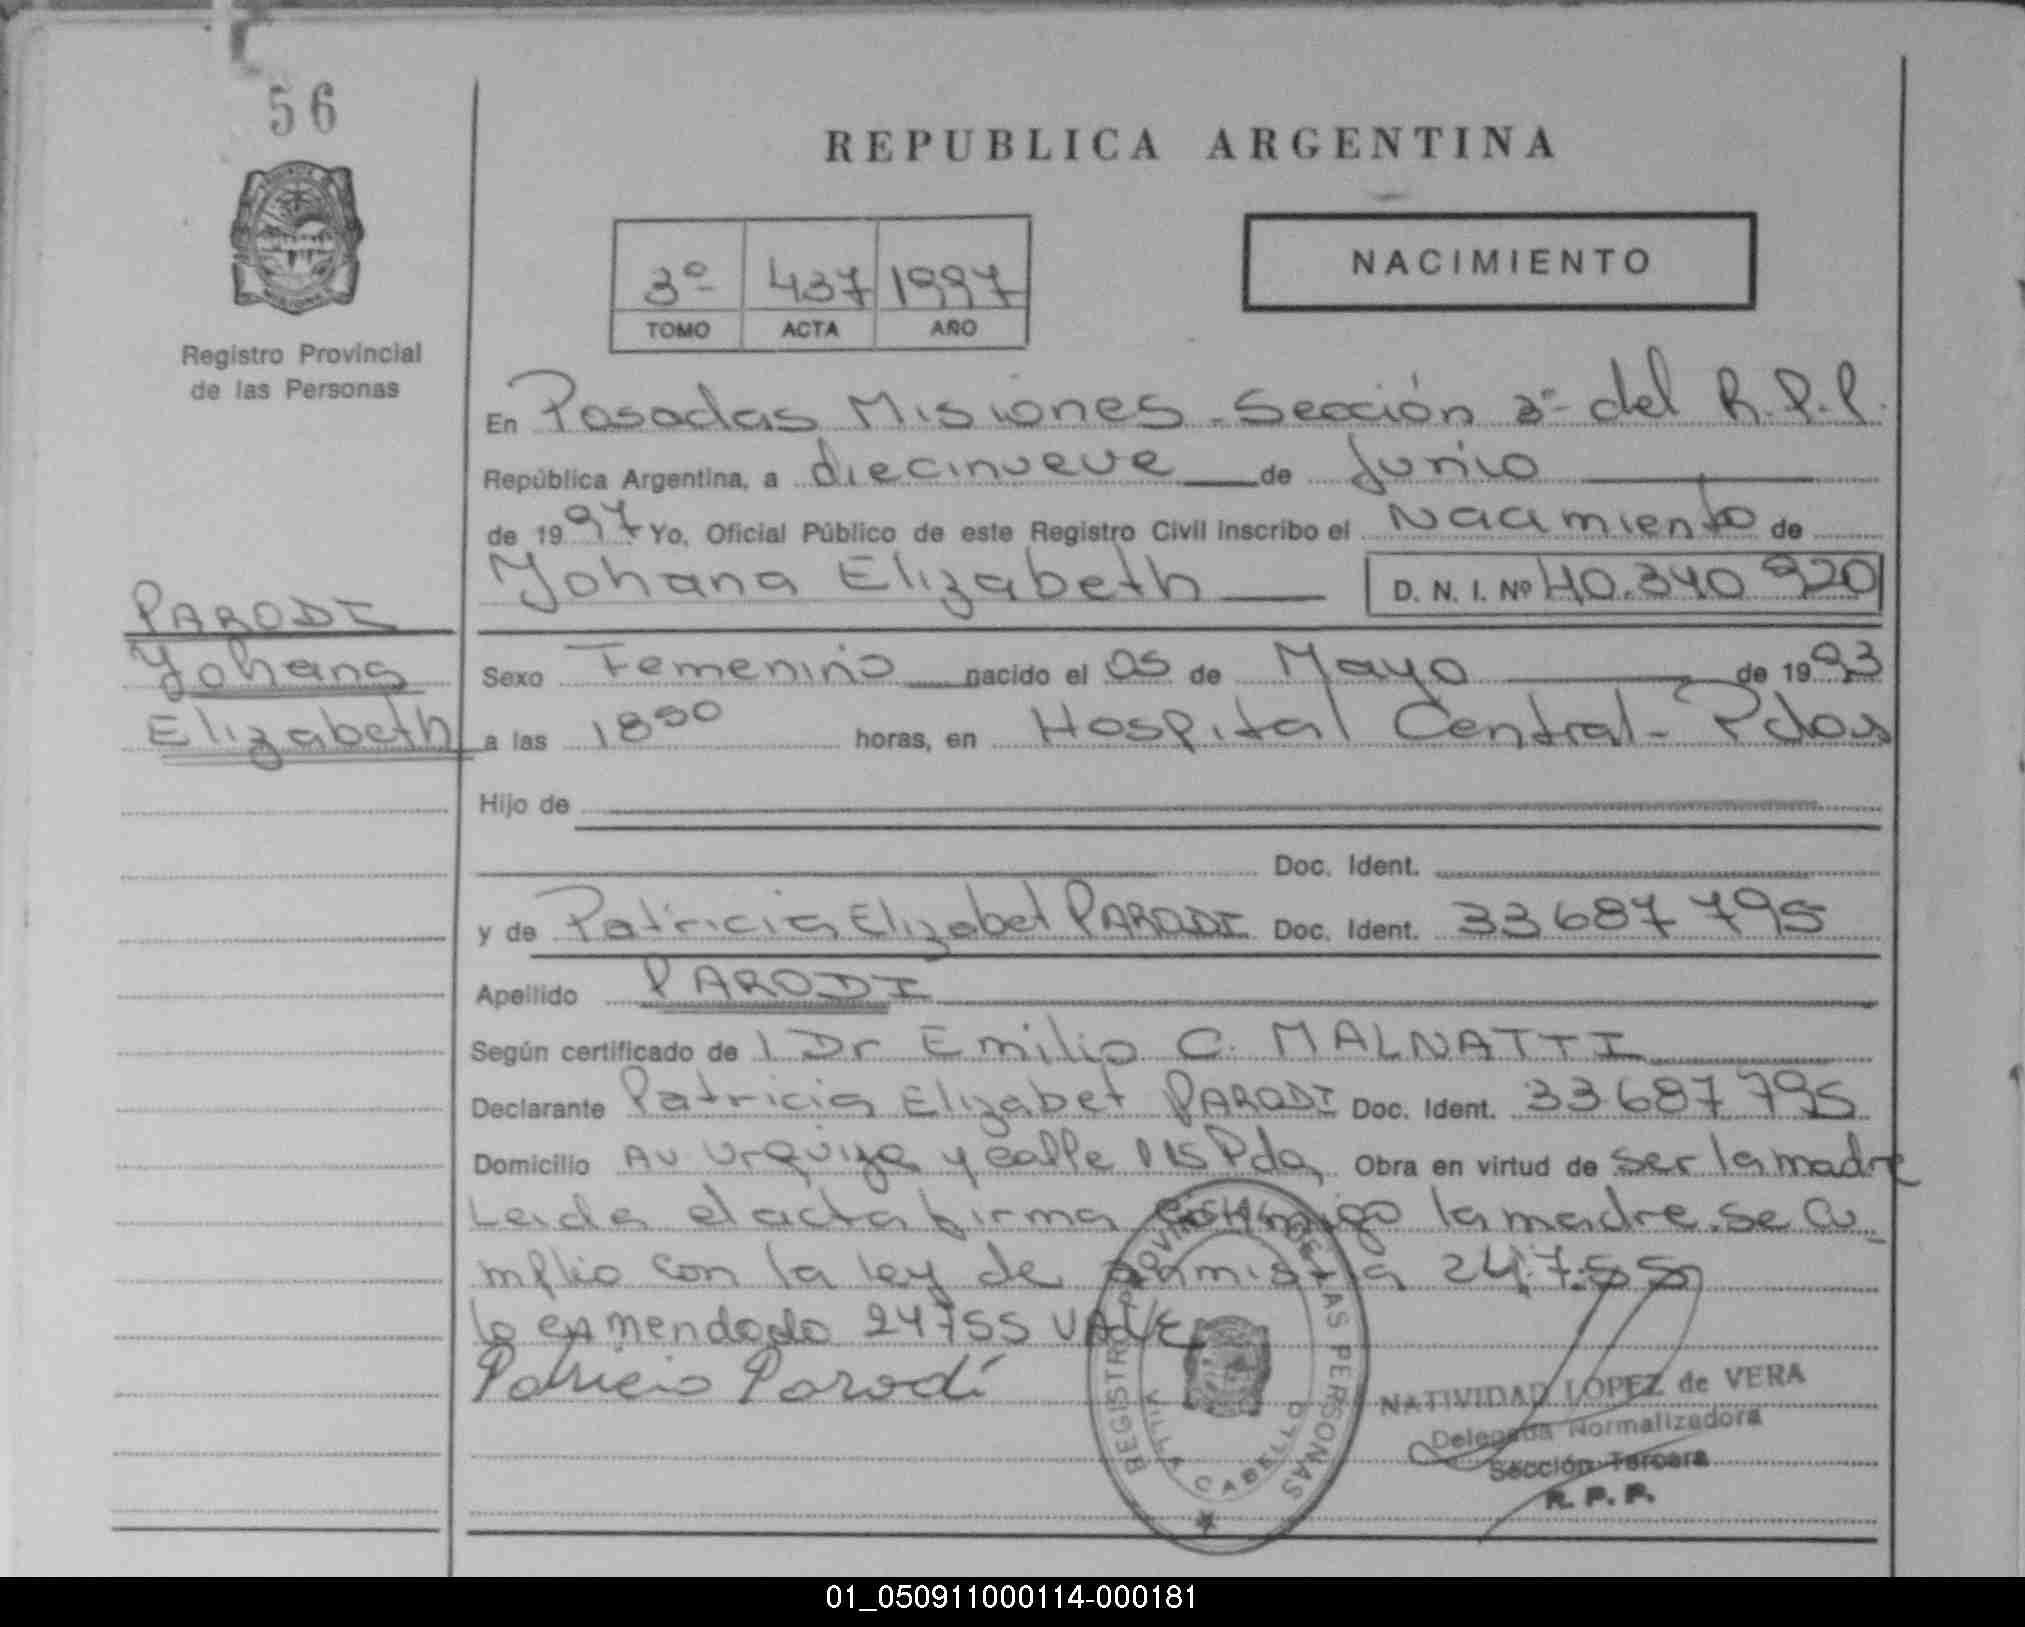 56
REPUBLICA ARGENTINA
3º 437 1997
TOMO ACTA AÑO
NACIMIENTO
Registro Provincial
de las Personas
En Posadas Misiones - Sección 3º del R.P.P.
República Argentina, a diecinueve de Junio
de 1997 Yo, Oficial Público de este Registro Civil inscribo el Nacimiento de
Yohana Elizabeth D. N. I. Nº 40.340 920
PARODI
Yohana
Elizabeth
Sexo Femenino nacido el 05 de Mayo de 1993
a las 18 horas, en Hospital Central - Pdas
Hijo de
Doc. Ident.
y de Patricia Elizabet PARODI Doc. Ident. 33 687 795
Apellido PARODI
Según certificado de l Dr Emilio C. MALNATTI
Declarante Patricia Elizabet PARODI Doc. Ident. 33 687 795
Domicilio Av Urquiza y calle 115 Pdas Obra en virtud de ser la madre
Leida el acta firma conmigo la madre. se cu
mplio con la ley de amnistia 24.755
lo enmendado 24755 VALE
Patricia Parodi
REGISTRO PROVINCIAL DE LAS PERSONAS
VILLA CABELLO
NATIVIDAD LOPEZ de VERA
Delegada Normalizadora
Sección Tercera
R. P. P.
01_050911000114-000181